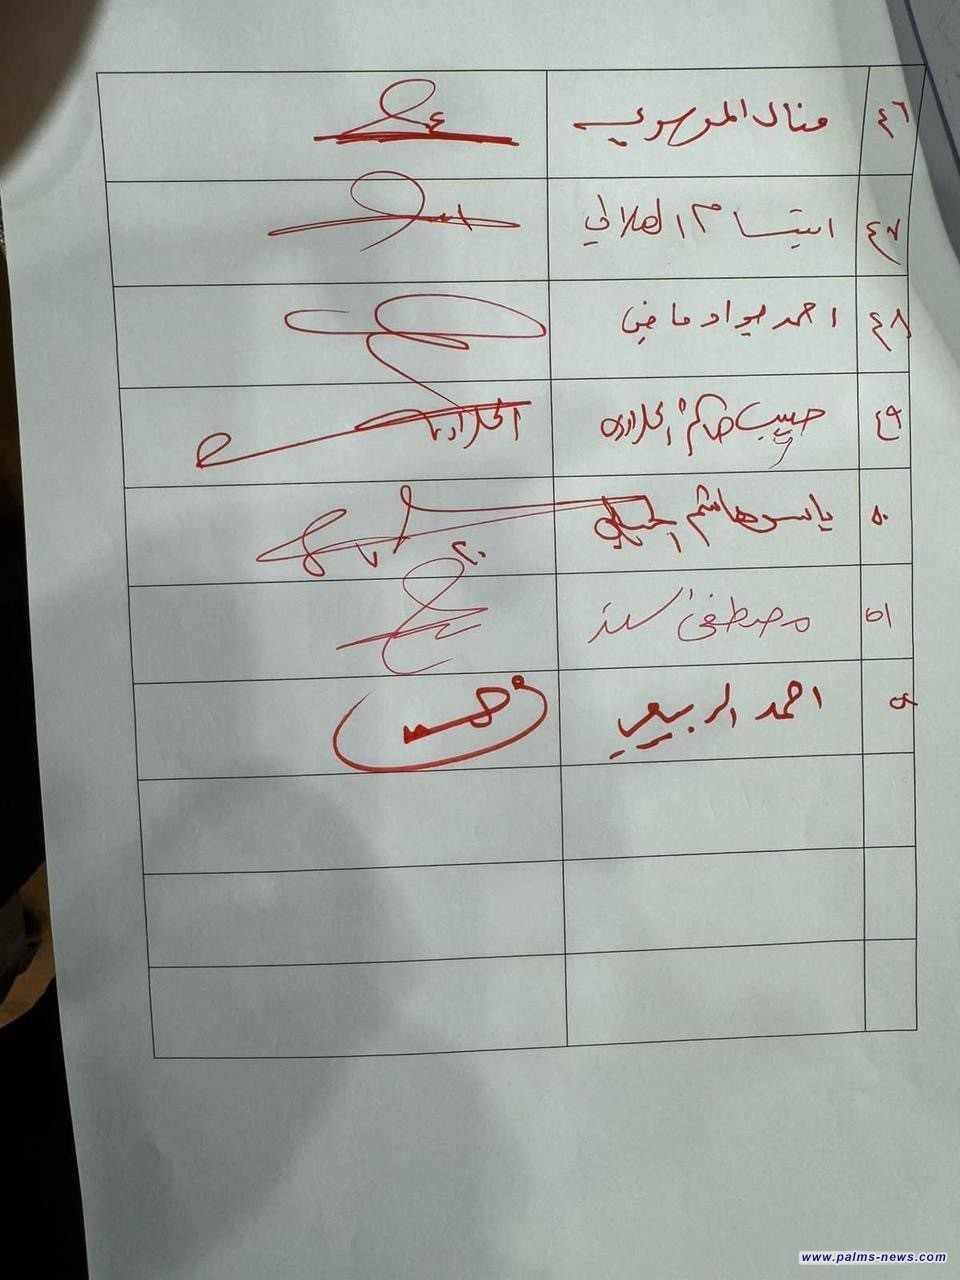 ٤٦ منال الموسوي
٤٧ ابتسام الهلالي
٤٨ احمد جواد ماضي
٤٩ حبيب حاكم الحلاوي
٥٠ ياسر هاشم
٥١ مصطفى سند
٥٢ احمد الربيعي
www.palms-news.com